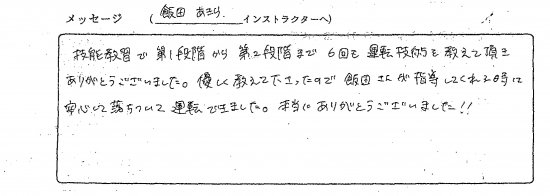 メッセージ （飯田 あきり インストラクターへ）
技能教習で第1段階から第2段階まで6回も運転技術を教えて頂き
ありがとうございました。優しく教えて下さったので飯田さんが指導してくれる時は
安心して落ちついて運転できました。本当にありがとうございました!!